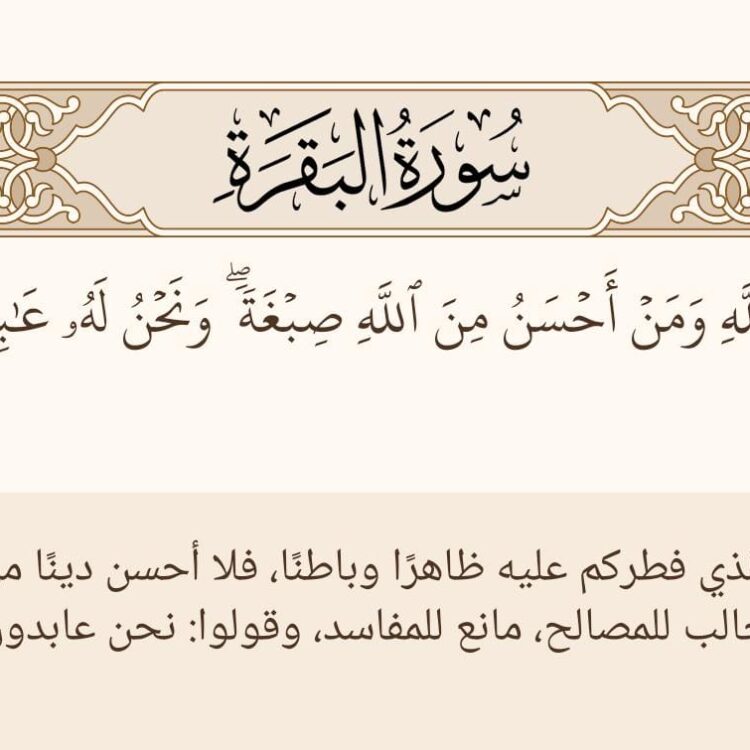 سُورَةُ البَقَرَةِ
وَمَنْ أَحْسَنُ مِنَ ٱللَّهِ صِبْغَةً ۖ وَنَحْنُ لَهُۥ
فطركم عليه ظاهرًا وباطنًا، فلا أحسن دينًا
للمصالح، مانع للمفاسد، وقولوا: نحن